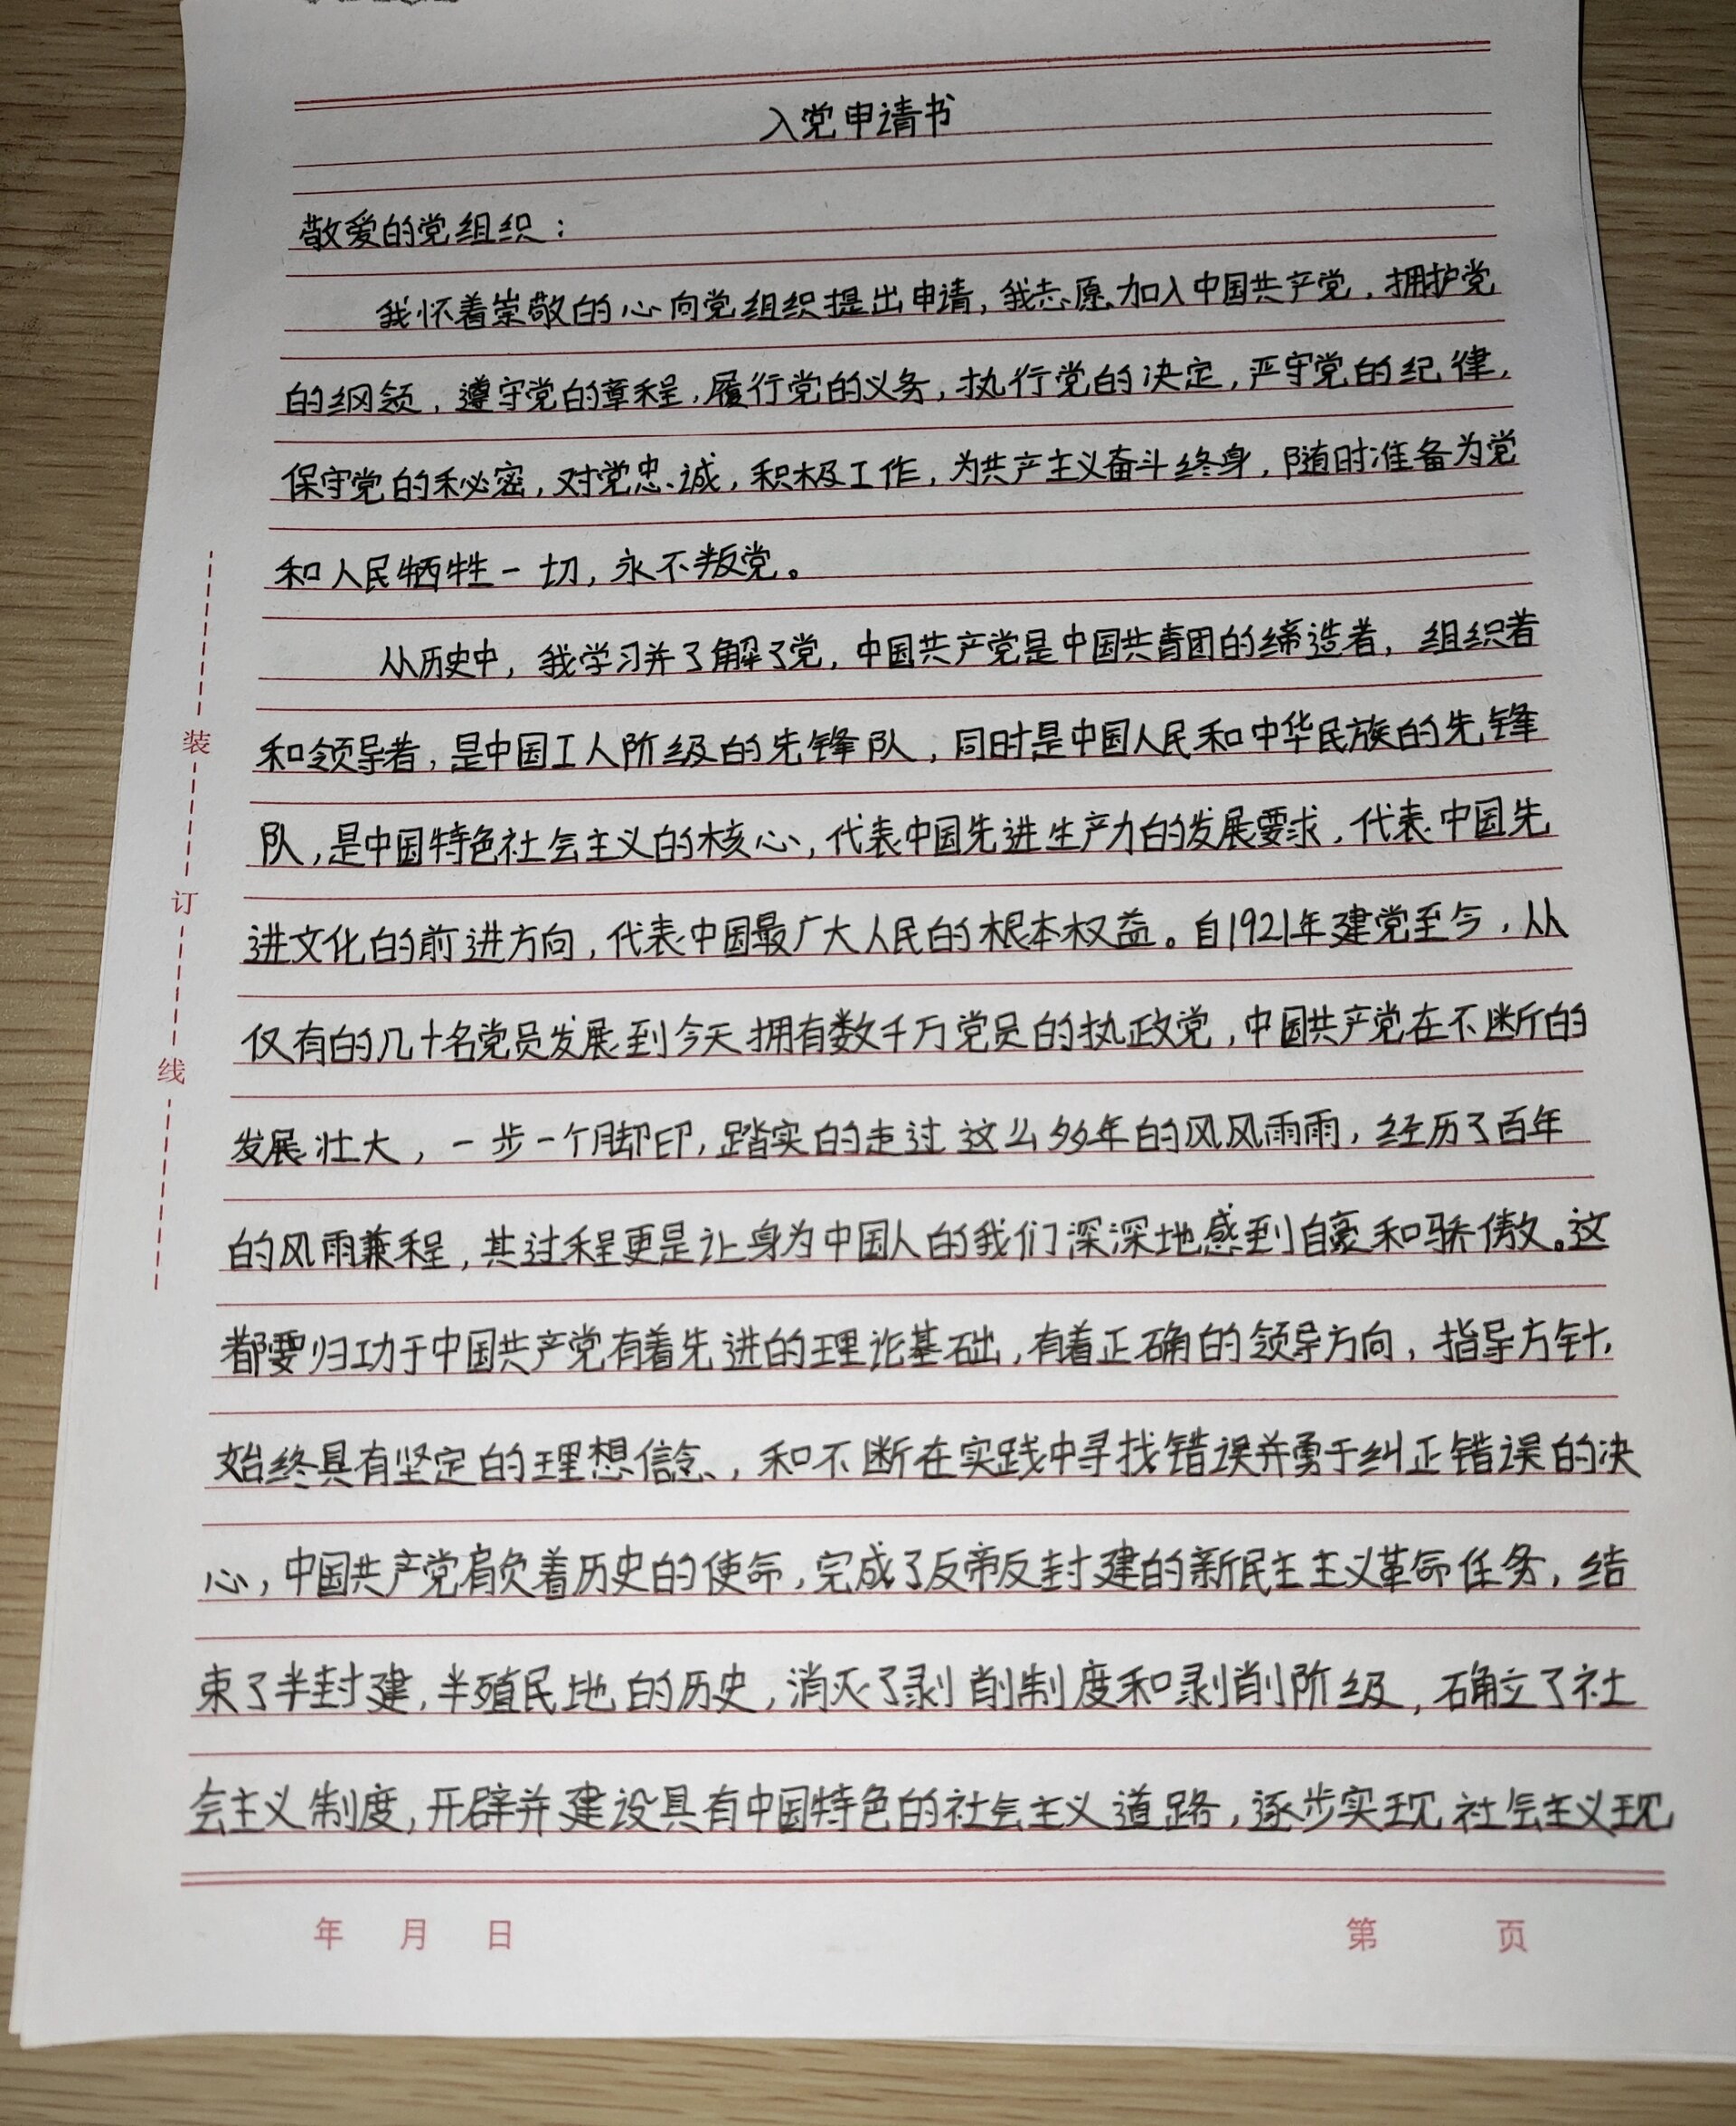 入党申请书
敬爱的党组织：
我怀着崇敬的心向党组织提出申请，我志愿加入中国共产党，拥护党
的纲领，遵守党的章程，履行党的义务，执行党的决定，严守党的纪律，
保守党的秘密，对党忠诚，积极工作，为共产主义奋斗终身，随时准备为党
和人民牺牲一切，永不叛党。
从历史中，我学习并了解了党，中国共产党是中国共青团的缔造者，组织者
和领导者，是中国工人阶级的先锋队，同时是中国人民和中华民族的先锋
队，是中国特色社会主义的核心，代表中国先进生产力的发展要求，代表中国先
进文化的前进方向，代表中国最广大人民的根本权益。自1921年建党至今，从
仅有的几十名党员发展到今天拥有数千万党员的执政党，中国共产党在不断的
发展壮大，一步一个脚印，踏实的走过这么多年的风风雨雨，经历了百年
的风雨兼程，其过程更是让身为中国人的我们深深地感到自豪和骄傲。这
都要归功于中国共产党有着先进的理论基础，有着正确的领导方向，指导方针，
始终具有坚定的理想信念，和不断在实践中寻找错误并勇于纠正错误的决
心，中国共产党肩负着历史的使命，完成了反帝反封建的新民主主义革命任务，结
束了半封建，半殖民地的历史，消灭了剥削制度和剥削阶级，确立了社
会主义制度，开辟并建设具有中国特色的社会主义道路，逐步实现社会主义现
装
订
线
年 月 日
第 页